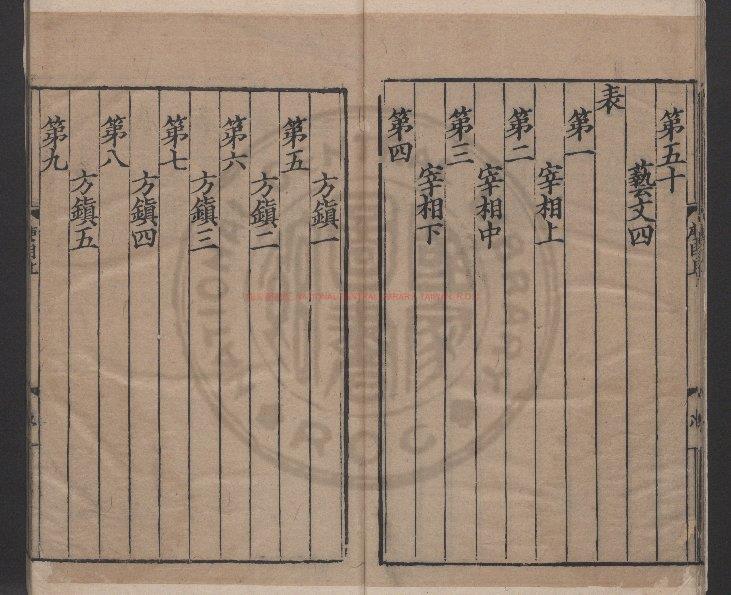 第五十
藝文四
表
第一
宰相上
第二
宰相中
第三
宰相下
第四
方鎮一
第五
方鎮二
第六
方鎮三
第七
方鎮四
第八
方鎮五
第九